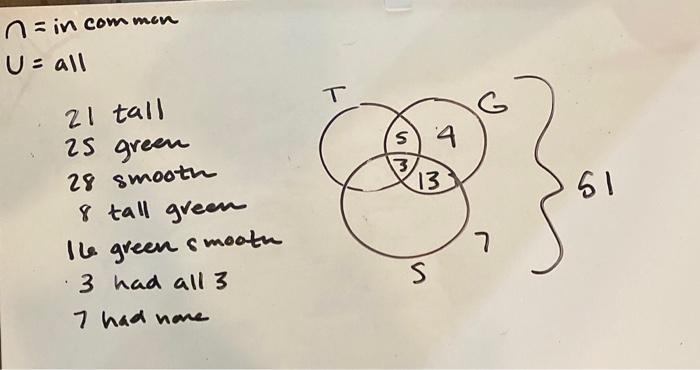 ∩ = in common
U = all
21 tall
25 green
28 smooth
8 tall green
16 green smooth
3 had all 3
7 had none
T
G
5 4
3
13
51
7
S